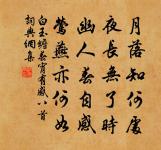 月落知何處
夜長無了時
幽人苦自感
鶯燕亦何知
白玉蟾春宵有感八首
詞典網集